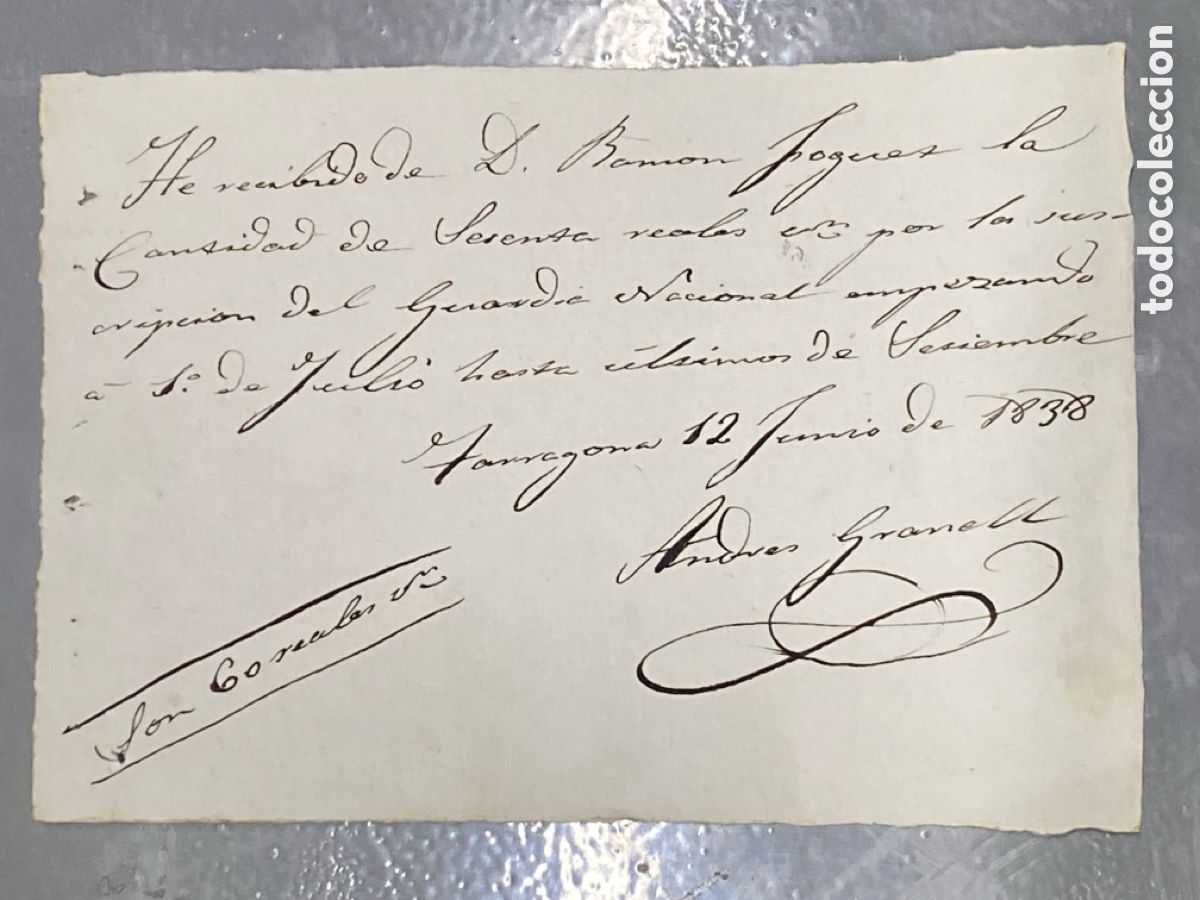 He recibido de D. Ramon Foguet la
Cantidad de Sesenta reales vn por la sus-
cripcion del Guardia Nacional empezando
á 1.º de Julio hasta últimos de Setiembre
Tarragona 12 Junio de 1838
Andres Granell
Son 60 reales vn
todocoleccion